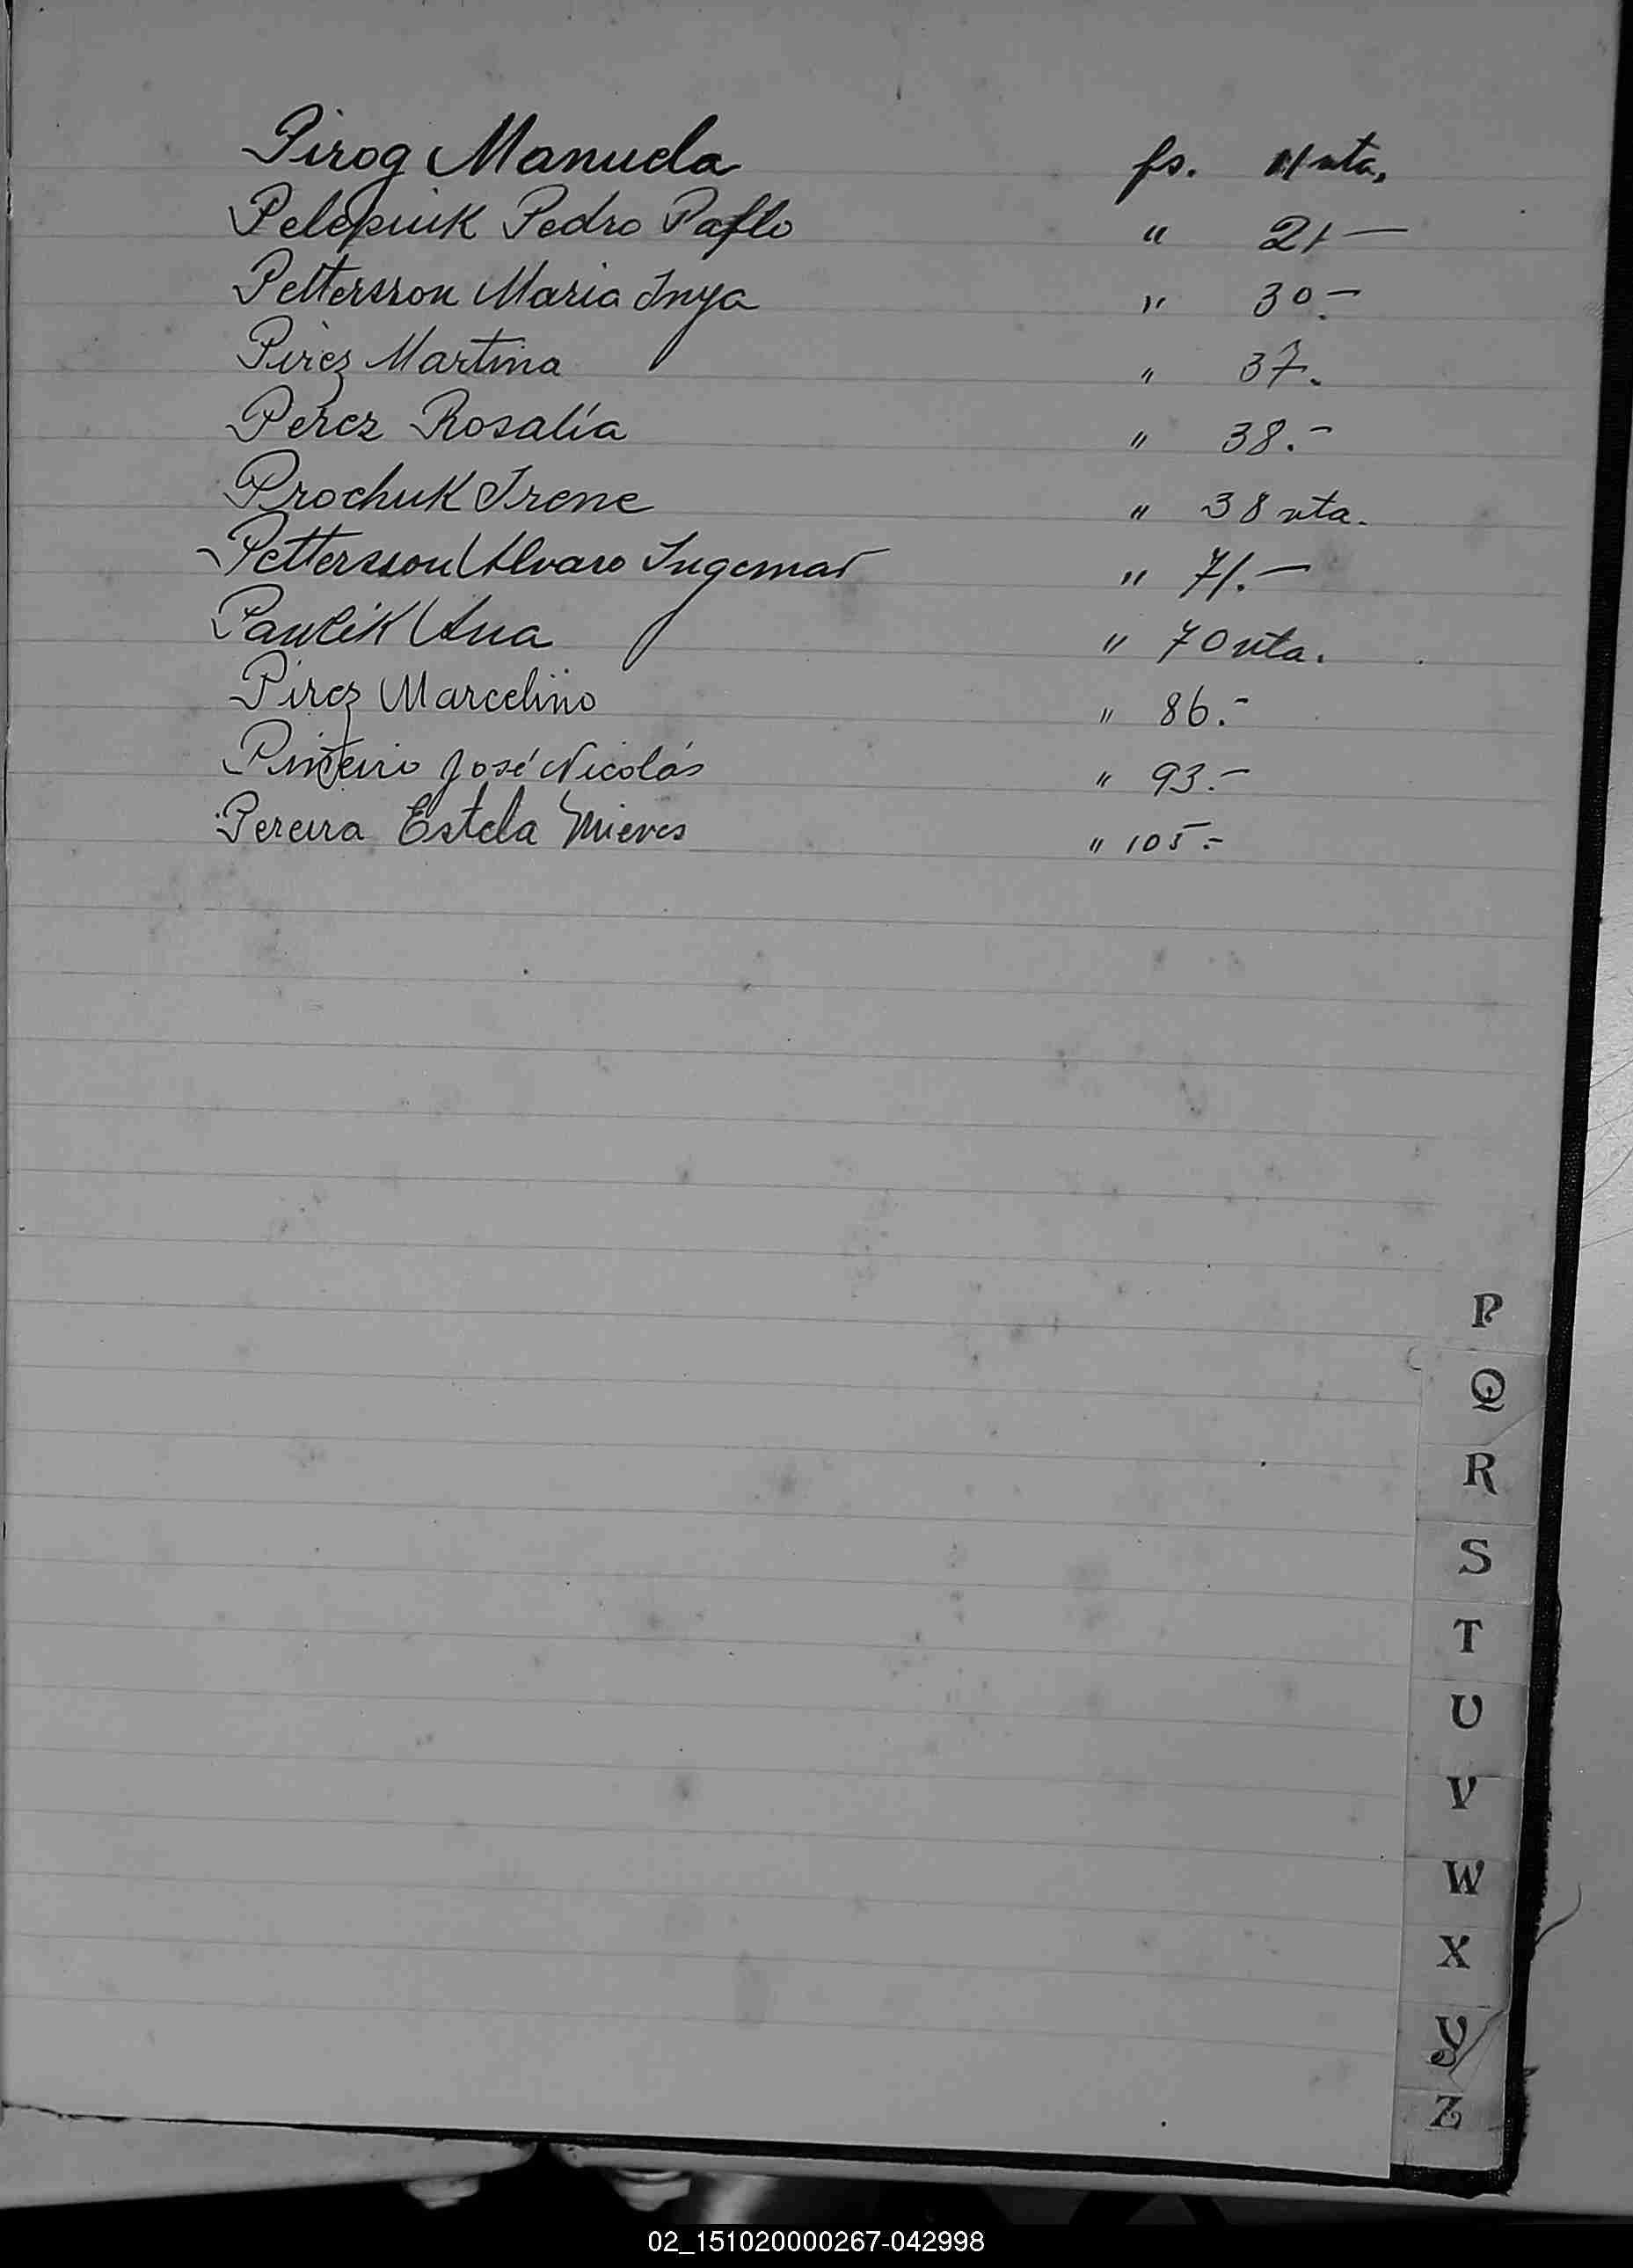 Pirog Manuela fs. 11 vta.
Pelepiuk Pedro Pablo " 21 —
Pettersson Maria Inga " 30.-
Pirez Martina " 37.
Perez Rosalía " 38.-
Prochuk Irene " 38 vta.
Pettersson Alvaro Ingemar " 71.—
Pawlik Ana " 70 vta.
Pirez Marcelino " 86.-
José Nicolás " 93.-
Pereira Estela Nieves " 105.-
P
Q
R
S
T
U
V
W
X
Y
Z
02_151020000267-042998